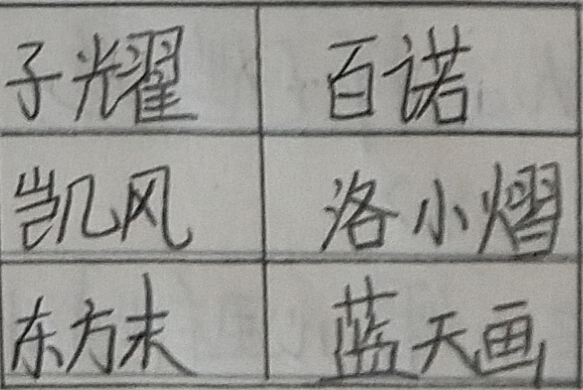 子耀 百诺
凯风 洛小熠
东方末 蓝天画